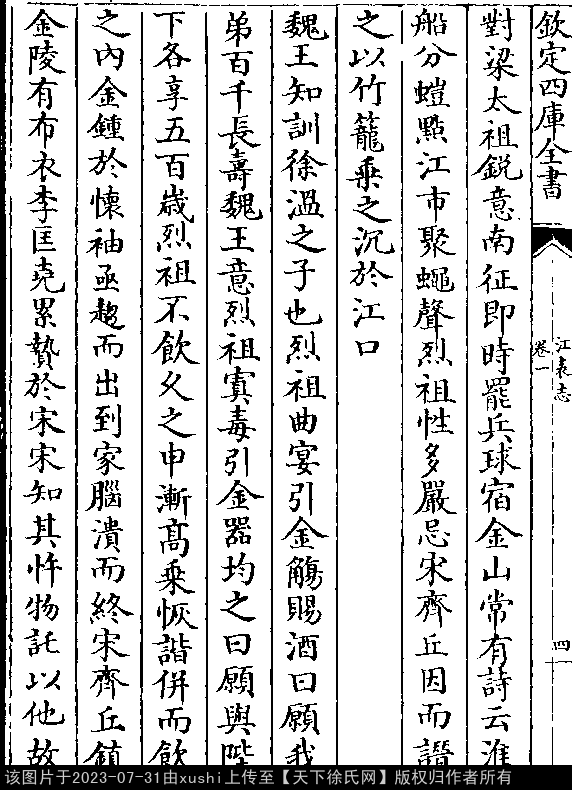 欽定四庫全書
江表志
卷一
四
對梁太祖銳意南征即時罷兵球宿金山常有詩云淮
船分螘點江市聚蠅聲烈祖性多嚴忌宋齊丘因而譖
之以竹籠乗之沉於江口
魏王知訓徐溫之子也烈祖曲宴引金觴賜酒曰願我
弟百千長壽魏王意烈祖寘毒引金器均之曰願與陛
下各享五百歲烈祖不飲久之申漸髙乗恢諧併而飲
之內金鍾於懷袖亟趨而出到家腦潰而終宋齊丘鎮
金陵有布衣李匡堯累贄於宋宋知其忤物託以他故
该图片于2023-07-31由xushi上传至【天下徐氏网】版权归作者所有